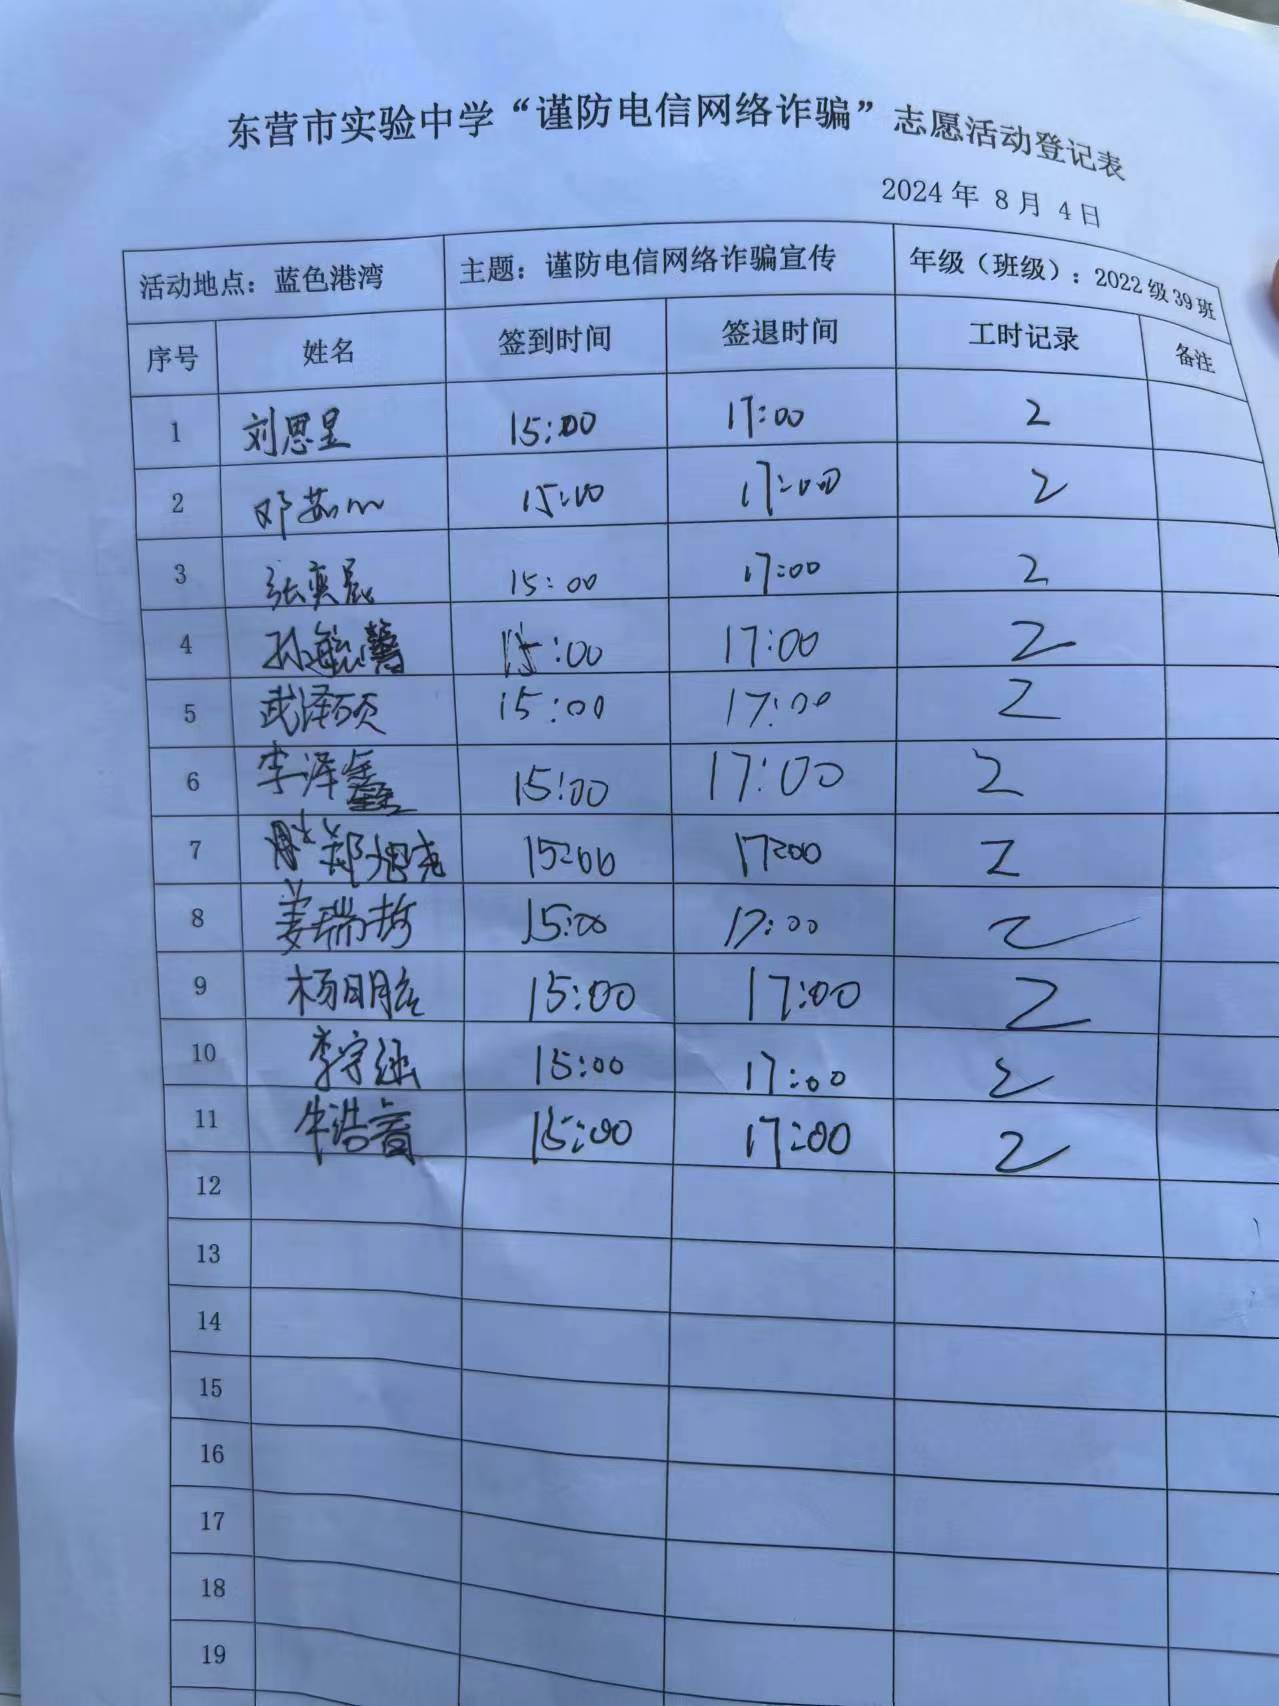 东营市实验中学“谨防电信网络诈骗”志愿活动登记表
2024 年 8 月 4 日
活动地点：蓝色港湾 主题：谨防电信网络诈骗宣传 年级（班级）：2022 级 39 班
序号 姓名 签到时间 签退时间 工时记录 备注
1 刘思呈 15:00 17:00 2
2 邓茹 15:00 17:00 2
3 张奕晨 15:00 17:00 2
4 孙毓馨 15:00 17:00 2
5 武泽硕 15:00 17:00 2
6 李泽鑫 15:00 17:00 2
7 郑旭尧 15:00 17:00 2
8 姜瑞哲 15:00 17:00 2
9 杨明 15:00 17:00 2
10 李守 15:00 17:00 2
11 牛浩睿 15:00 17:00 2
12
13
14
15
16
17
18
19